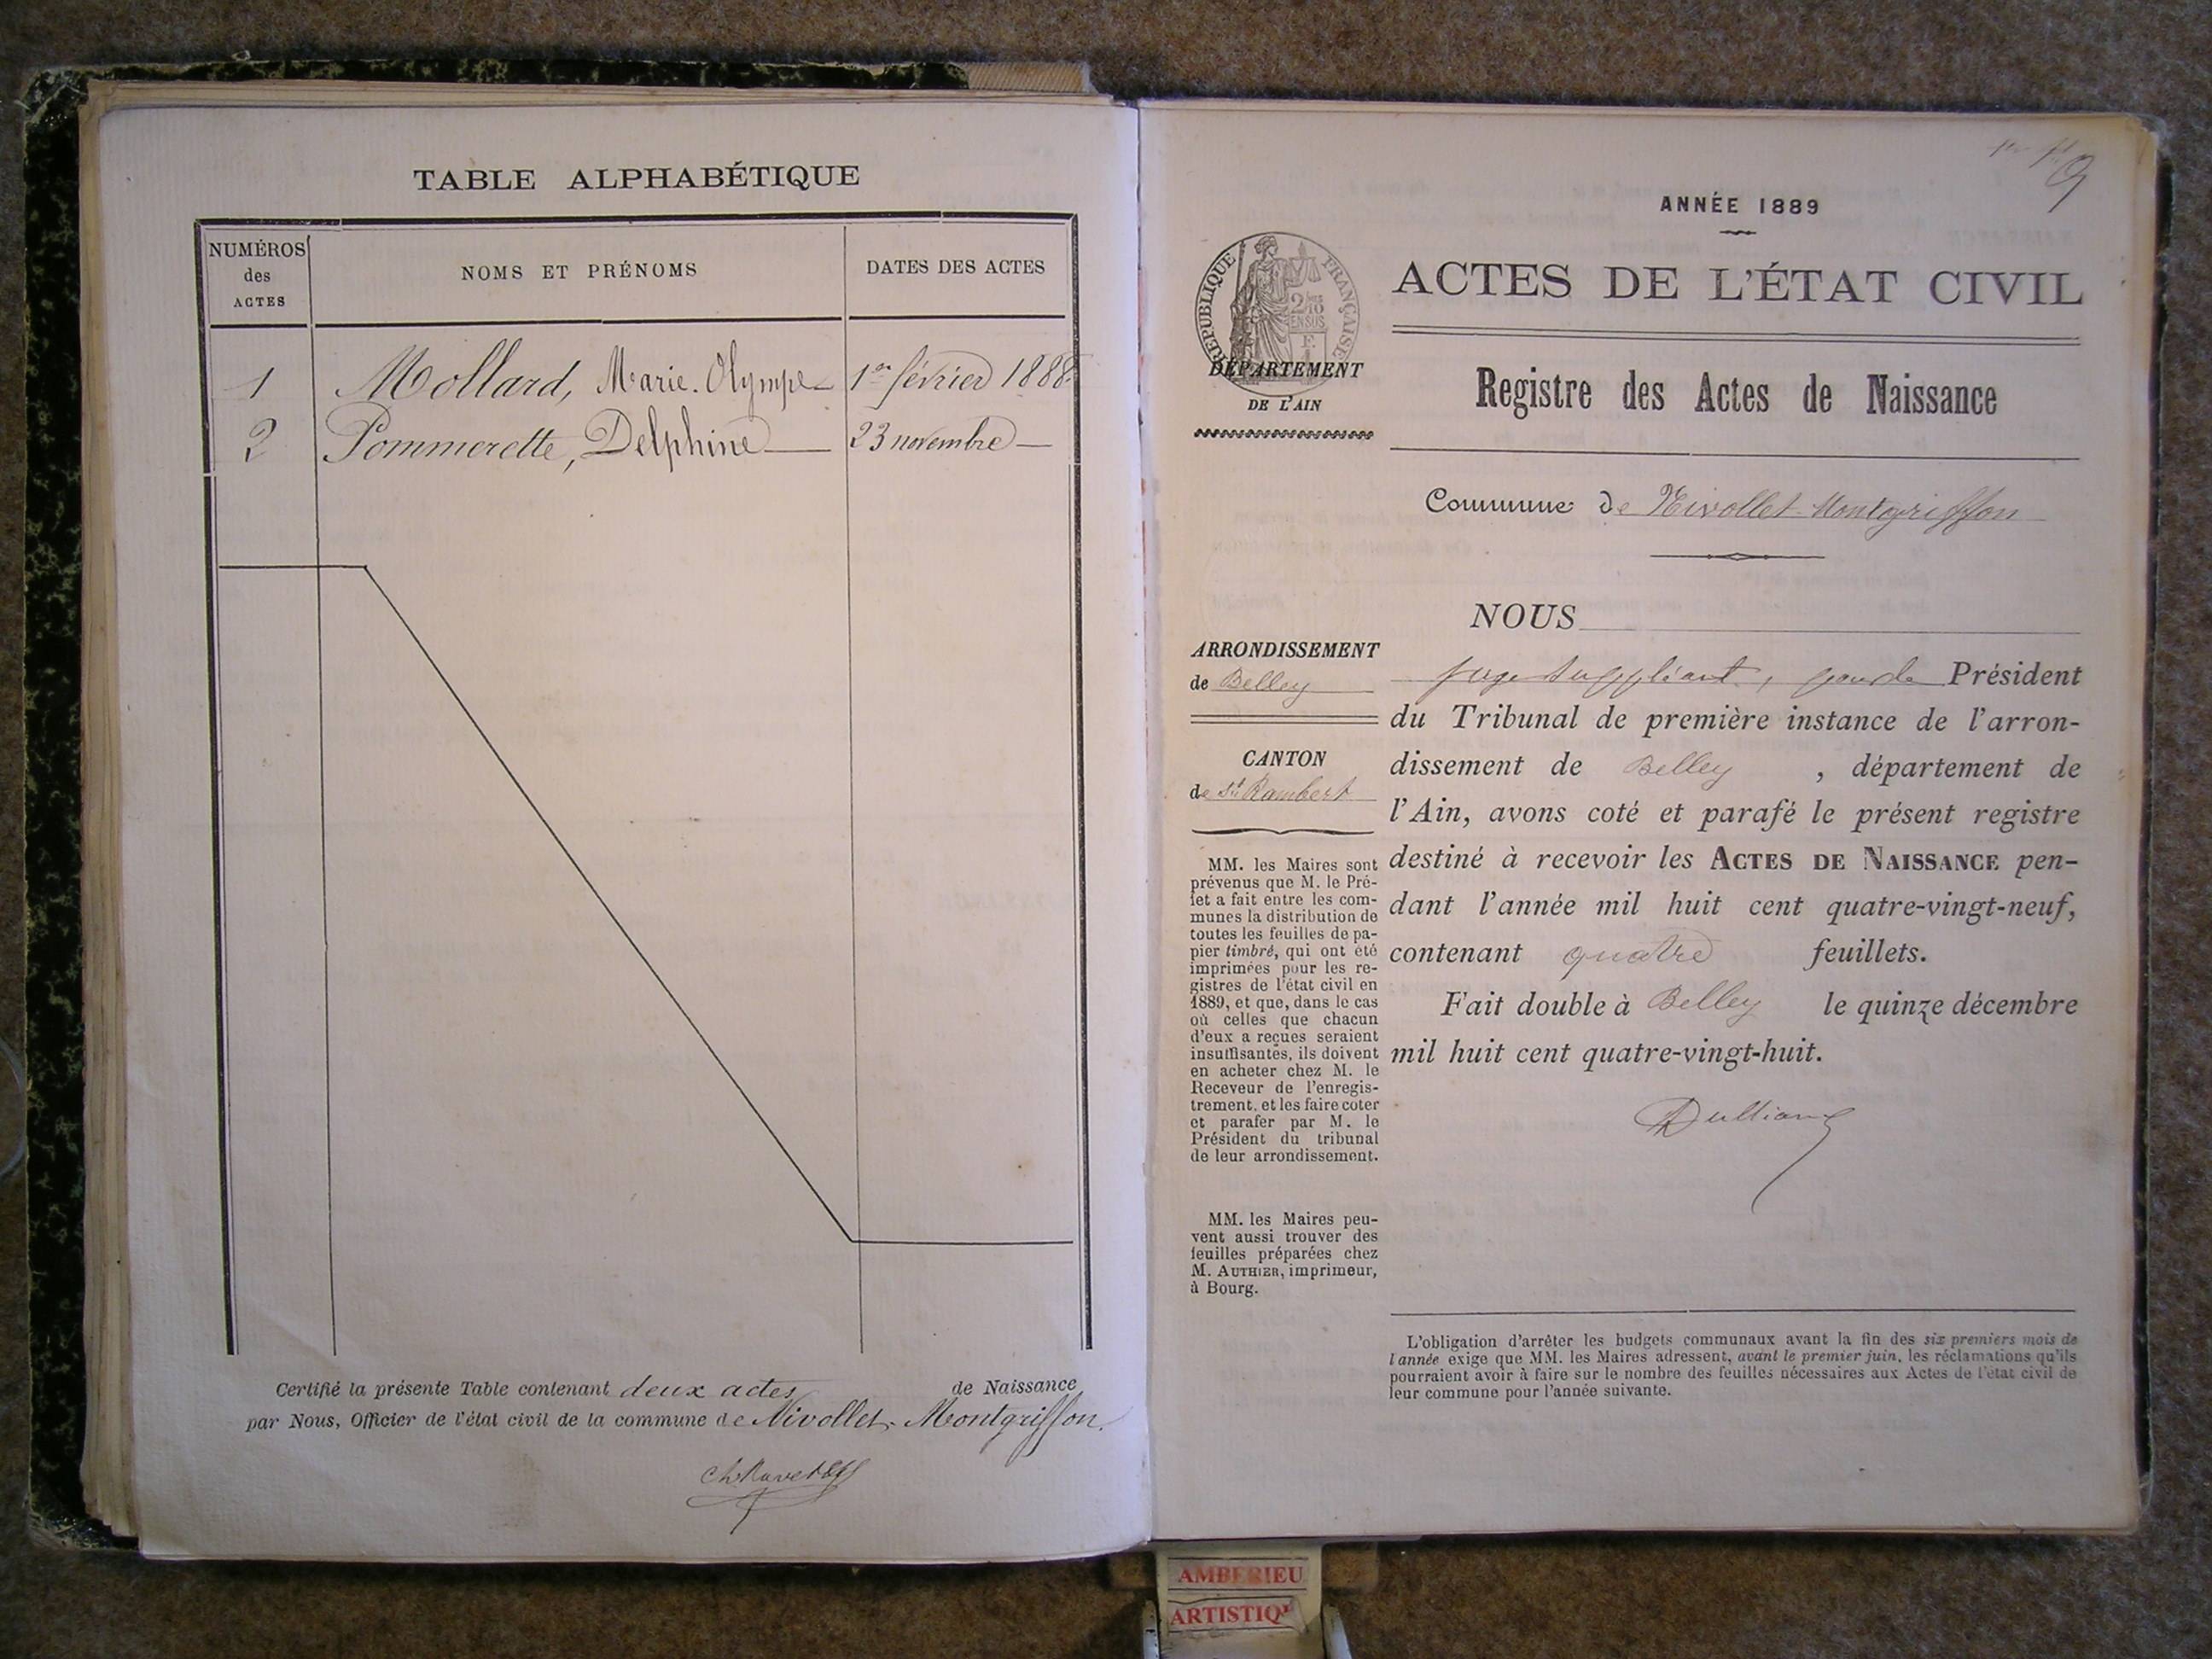 TABLE ALPHABÉTIQUE
NUMÉROS
des
ACTES
NOMS ET PRÉNOMS
DATES DES ACTES
1 Mollard, Marie-Olympe 1er février 1888
2 Pommerette, Delphine 23 novembre
Certifié la présente Table contenant deux actes de Naissance
par Nous, Officier de l'état civil de la commune de Nivollet-Montgriffon.
ANNÉE 1889
RÉPUBLIQUE FRANÇAISE
DÉPARTEMENT
DE L'AIN
ACTES DE L'ÉTAT CIVIL
Registre des Actes de Naissance
Commune de Nivollet-Montgriffon
ARRONDISSEMENT
de Belley
CANTON
de St Rambert
MM. les Maires sont
prévenus que M. le Pré-
fet a fait entre les com-
munes la distribution de
toutes les feuilles de pa-
pier timbré, qui ont été
imprimées pour les re-
gistres de l'état civil en
1889, et que, dans le cas
où celles que chacun
d'eux a reçues seraient
insuffisantes, ils doivent
en acheter chez M. le
Receveur de l'enregis-
trement, et les faire coter
et parafer par M. le
Président du tribunal
de leur arrondissement.
MM. les Maires peu-
vent aussi trouver des
feuilles préparées chez
M. AUTHIER, imprimeur,
à Bourg.
NOUS
juge suppléant, pour le Président
du Tribunal de première instance de l'arron-
dissement de Belley, département de
l'Ain, avons coté et parafé le présent registre
destiné à recevoir les ACTES DE NAISSANCE pen-
dant l'année mil huit cent quatre-vingt-neuf,
contenant quatre feuillets.
Fait double à Belley le quinze décembre
mil huit cent quatre-vingt-huit.
L'obligation d'arrêter les budgets communaux avant la fin des six premiers mois de
l'année exige que MM. les Maires adressent, avant le premier juin, les réclamations qu'ils
pourraient avoir à faire sur le nombre des feuilles nécessaires aux Actes de l'état civil de
leur commune pour l'année suivante.
AMBERIEU
ARTISTIQ